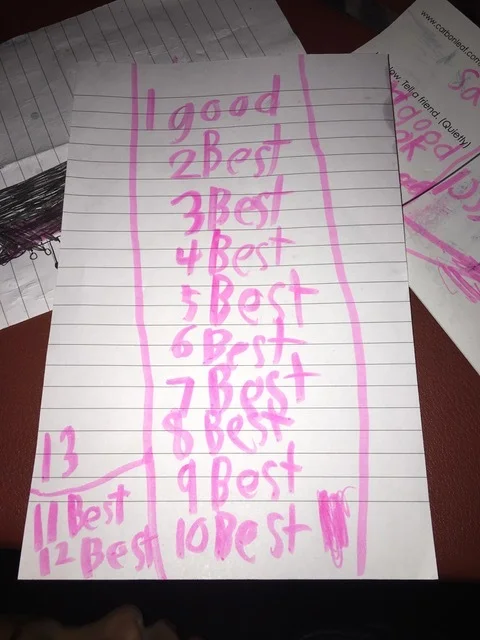 1 good
2 Best
3 Best
4 Best
5 Best
6 Best
7 Best
8 Best
9 Best
10 Best
13
11 Best
12 Best
www.carbonleaf.com
Tell a friend. (Quietly)
good
ok